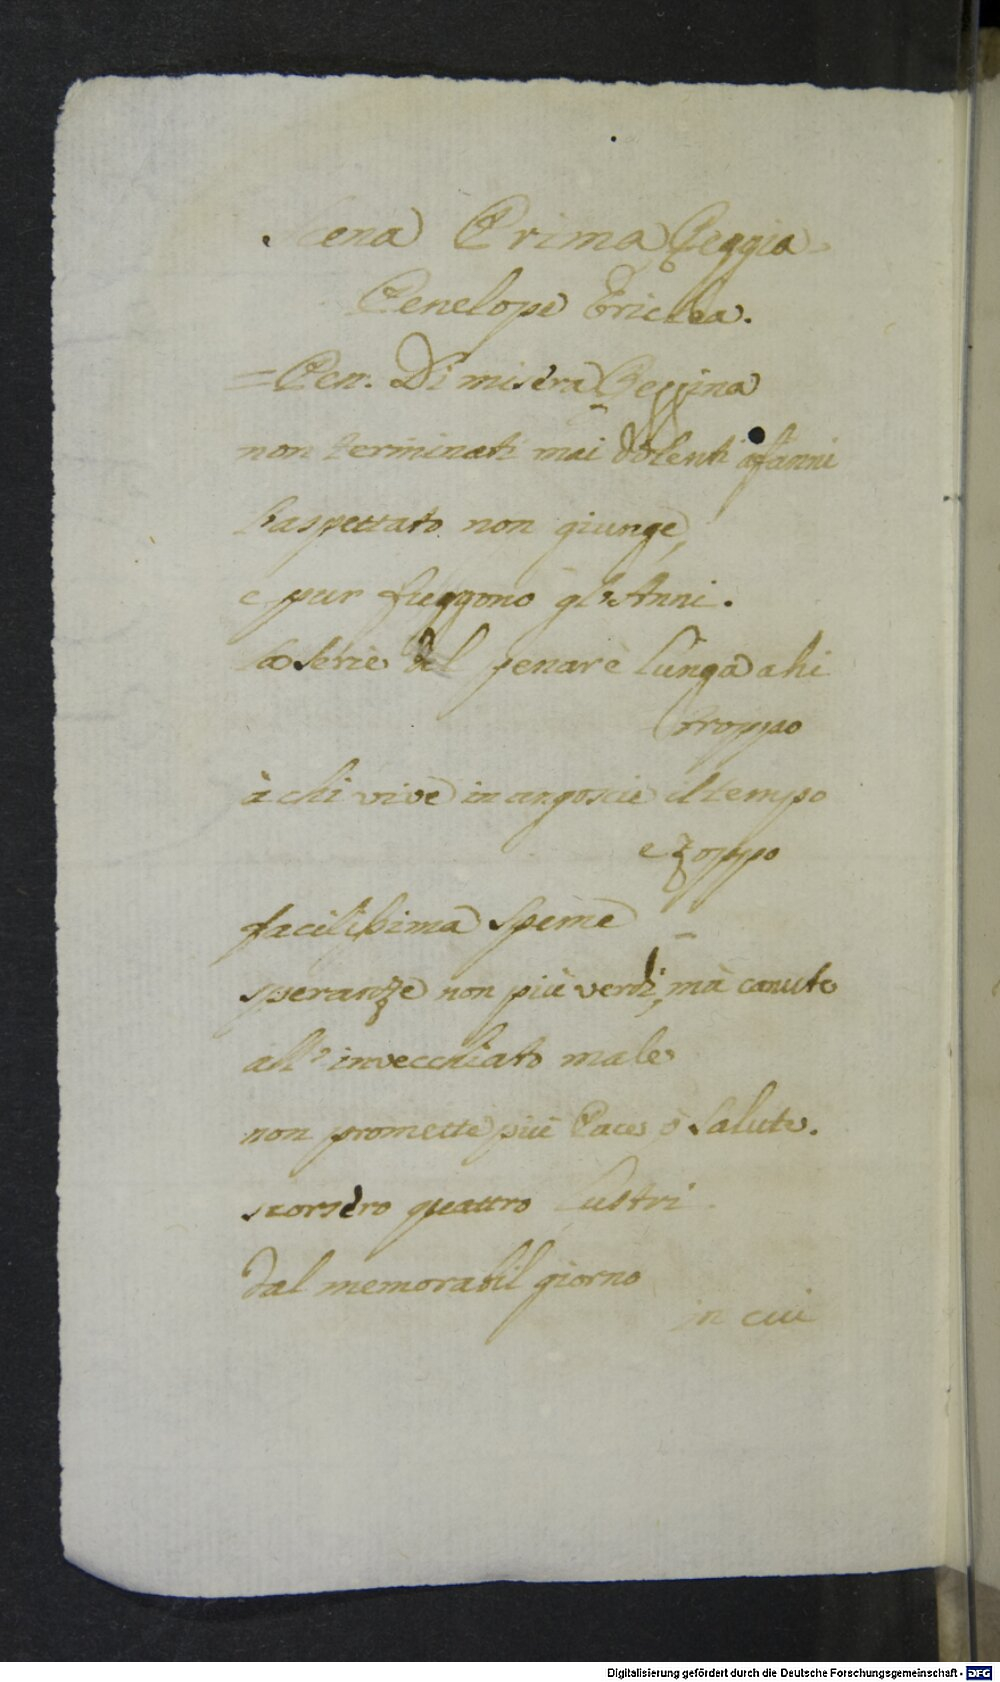 Scena Prima Reggia
Penelope Ericlea.
= Pen. Di misera Reggina
non terminati mai dolenti afanni
L'aspettato non giunge,
e pur fuggono gl'Anni.
La serie del penar è lunga ahi
troppo
à chi vive in angoscie il tempo
e zoppo
facilissima speme
speranze non più verdi, mà canute
all' invecchiato male
non promette più Pace, ò Salute.
scorsero quattro Lustri
dal memorabil giorno
in cui
Digitalisierung gefördert durch die Deutsche Forschungsgemeinschaft - DFG